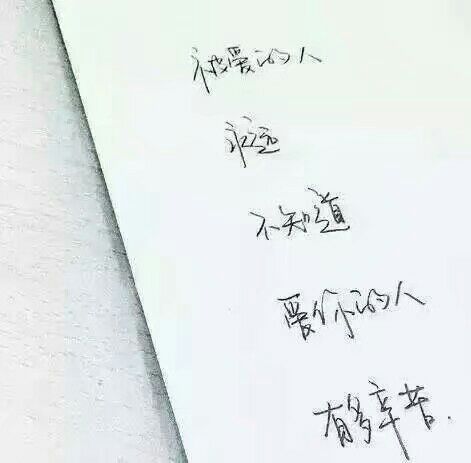 被爱的人
永远
不知道
爱你的人
有多辛苦.